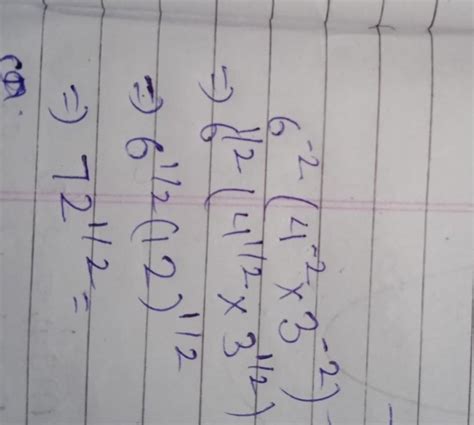 6⁻² (4⁻² × 3⁻²)
⇒ 6^1/2 (4^1/2 × 3^1/2)
⇒ 6^1/2 (12)^1/2
⇒ 72^1/2 =